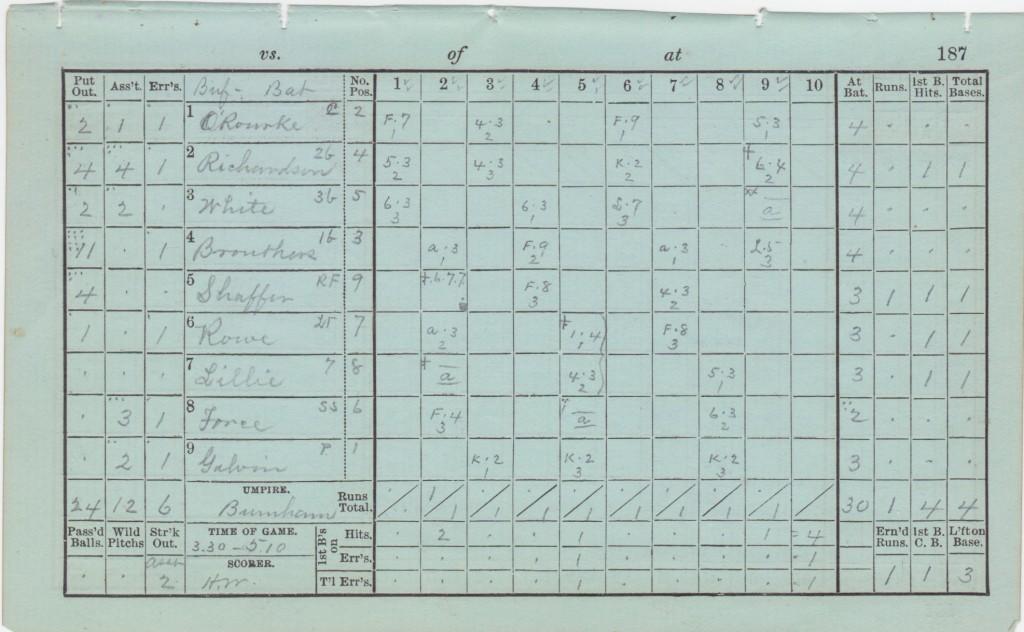 vs. of at 187
Put Out. Ass't. Err's. Buf- Bat No. Pos. 1 2 3 4 5 6 7 8 9 10 At Bat. Runs. 1st B. Hits. Total Bases.
2 1 1 1 O'Rourke C 2 F.7 1 4.3 2 F.9 1 5.3 1 4 . . .
4 4 1 2 Richardson 2b 4 5.3 2 4.3 3 K.2 2 6.4 2 4 . 1 1
2 2 . 3 White 3b 5 6.3 3 6.3 1 3 a 4 . . .
11 . 1 4 Brouthers 1b 3 a.3 1 F.9 2 a.3 1 3 4 . . .
4 . . 5 Shaffer RF 9 F.8 3 4.3 2 3 1 1 1
1 . 1 6 Rowe LF 7 a.3 2 1.4 1 F.8 3 3 . 1 1
. . . 7 Lillie 7 8 a 4.3 2 5.3 1 3 . 1 1
. 3 1 8 Force SS 6 F.4 3 a 6.3 2 2 . . .
. 2 1 9 Galvin P 1 K.2 1 K.2 3 K.2 3 3 . . .
24 12 6 UMPIRE. Burnham Runs Total. ./. 1/1 ./1 ./1 ./1 ./1 ./1 ./1 ./1 / 30 1 4 4
Pass'd Balls. Wild Pitchs Str'k Out. TIME OF GAME. 3.30-5.10 1st B's on Hits. . 2 . . 1 . . . 1 =4 Ern'd Runs. 1st B. C. B. L'fton Base.
Err's. . . . . 1 . . . . 1
. . 2 SCORER. H.W. T'l Err's. . . . . 1 . . . . 1 1 1 3